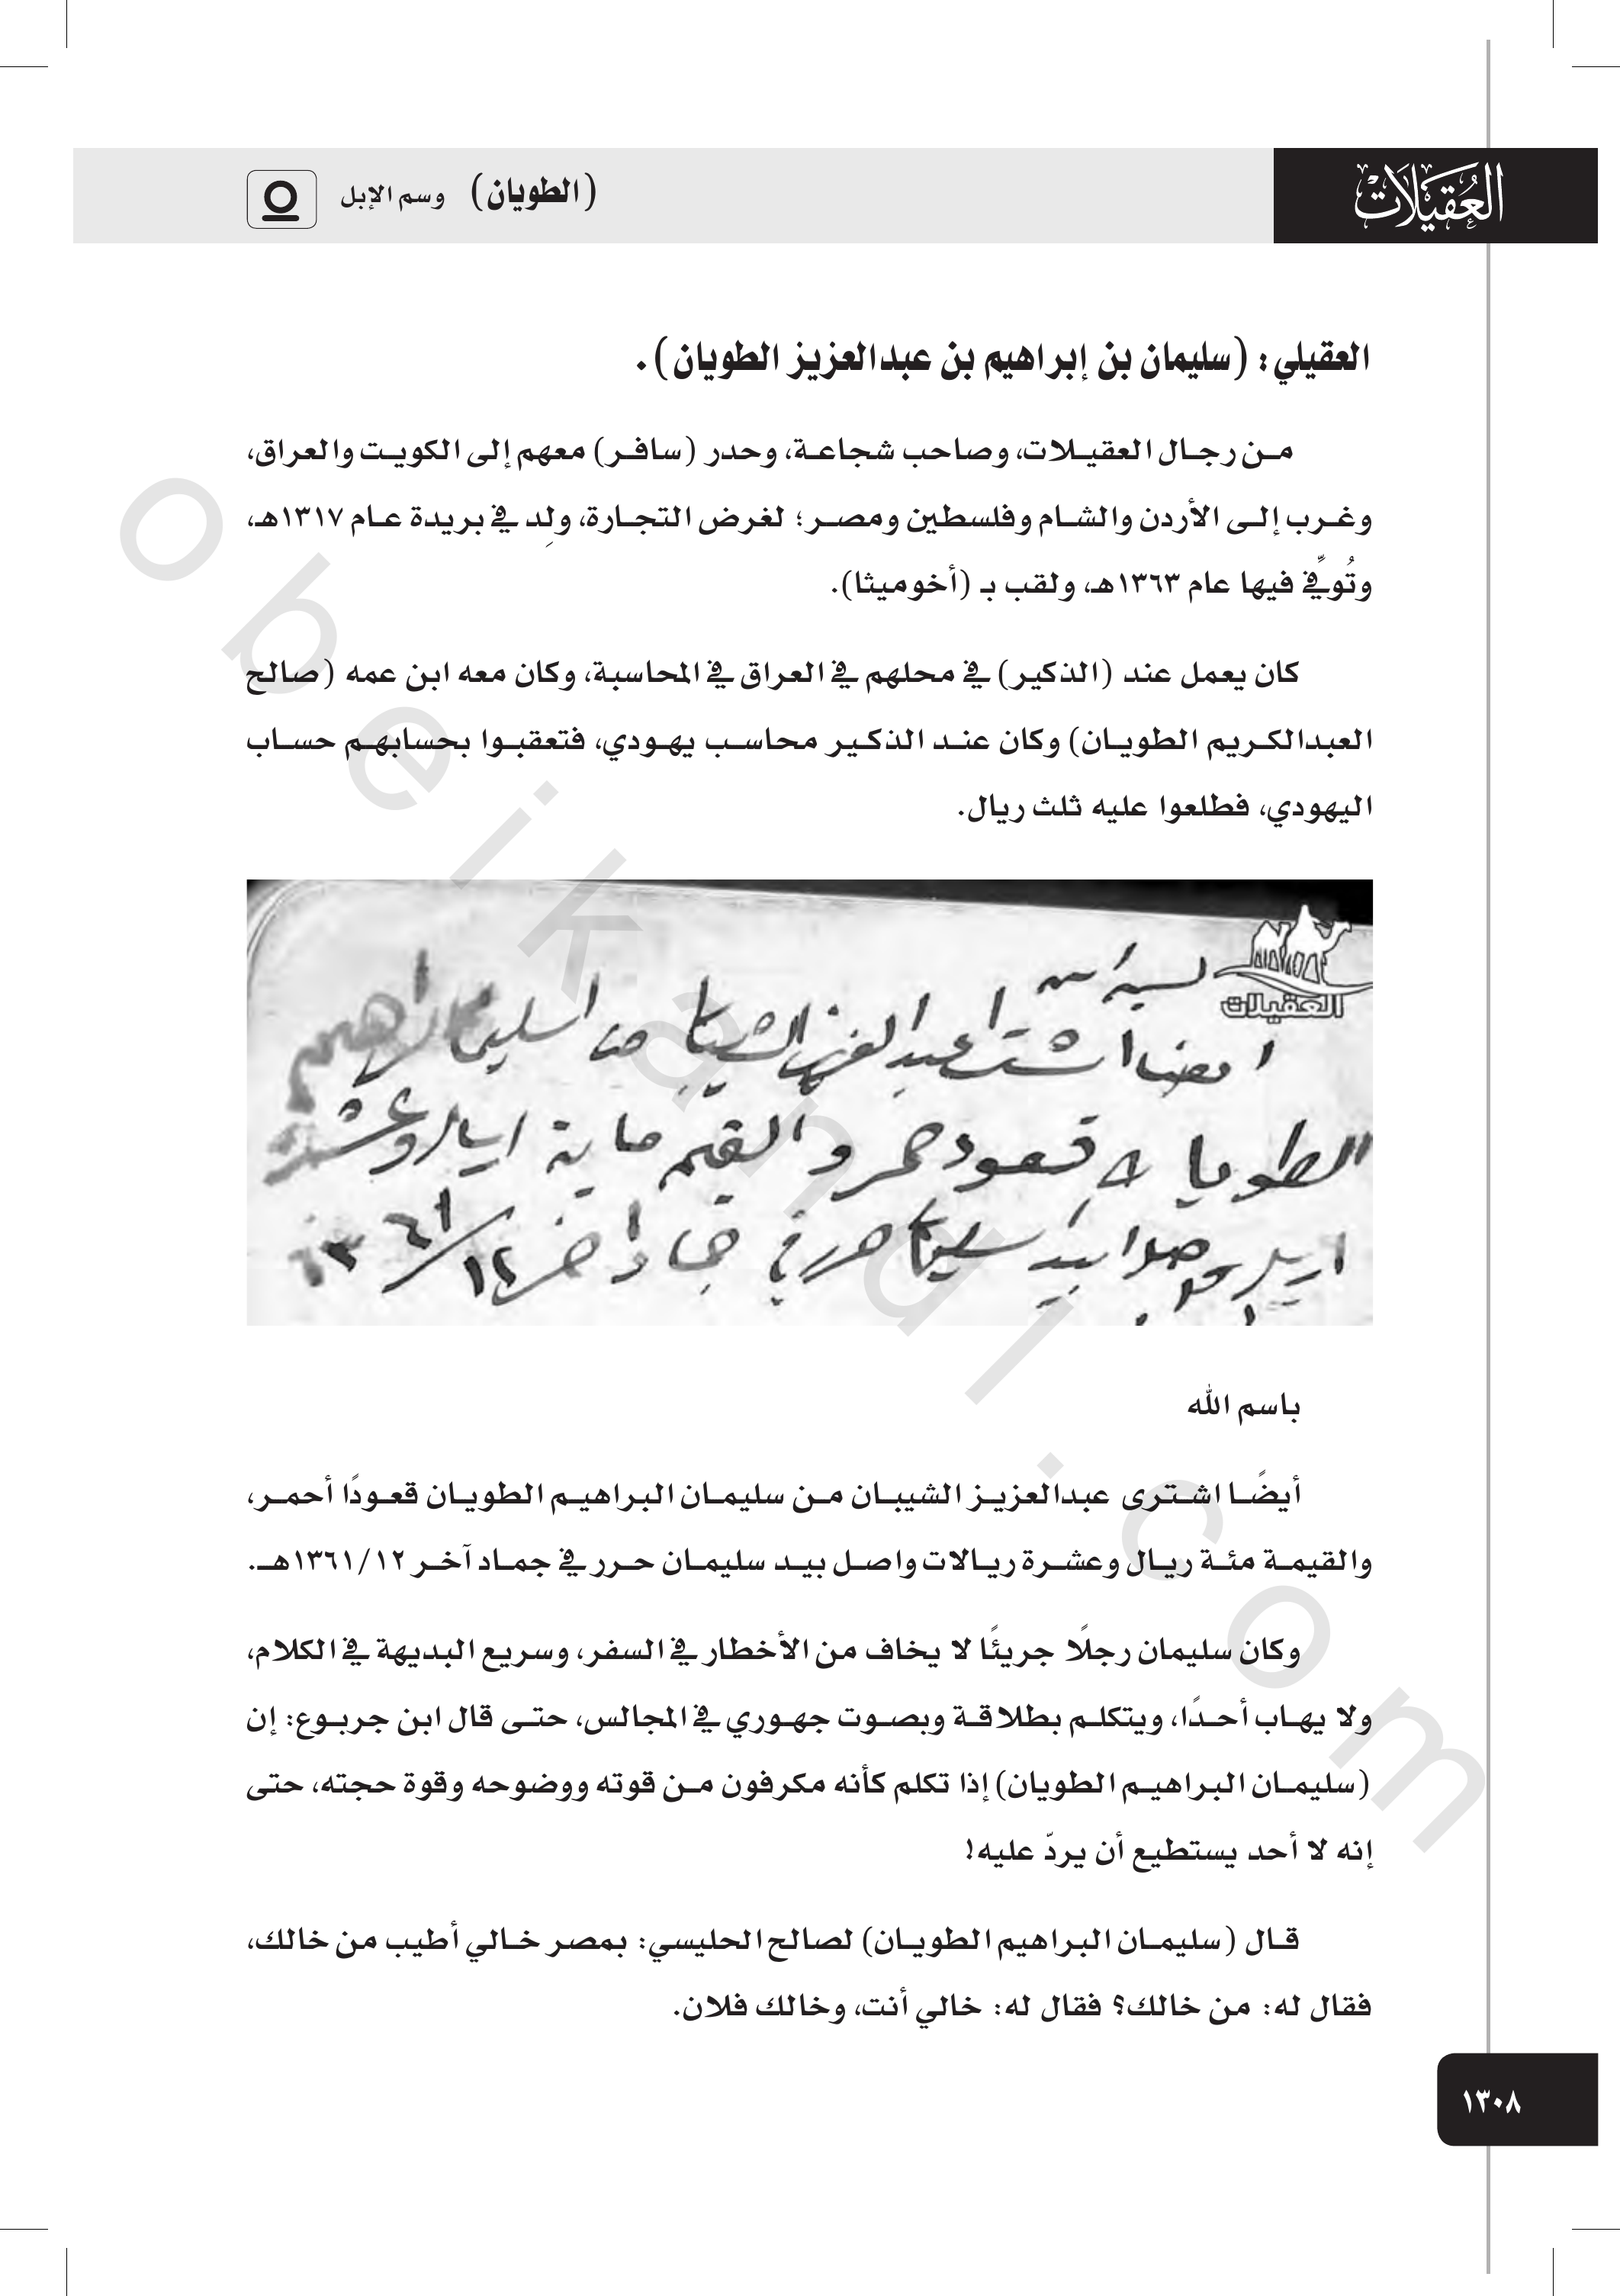 العُقَيْلَات
(الطويان) وسم الإبل
العقيلي: (سليمان بن إبراهيم بن عبدالعزيز الطويان).
من رجال العقيلات، وصاحب شجاعة، وحدر (سافر) معهم إلى الكويت والعراق،
وغرب إلى الأردن والشام وفلسطين ومصر؛ لغرض التجارة، ولِد في بريدة عام ١٣١٧هـ،
وتُوفِّي فيها عام ١٣٦٣هـ، ولقب بـ (أخوميثا).
كان يعمل عند (الذكير) في محلهم في العراق في المحاسبة، وكان معه ابن عمه (صالح
العبدالكريم الطويان) وكان عند الذكير محاسب يهودي، فتعقبوا بحسابهم حساب
اليهودي، فطلعوا عليه ثلث ريال.
العقيلات
عبد العزيز الشيبان من السليمان
الطويان قعود حمر والقيمه ماية اريال
باسم الله
أيضًا اشترى عبدالعزيز الشيبان من سليمان البراهيم الطويان قعودًا أحمر،
والقيمة مئة ريال وعشرة ريالات واصل بيد سليمان حرر في جماد آخر ١٣٦١/١٢هـ.
وكان سليمان رجلًا جريئًا لا يخاف من الأخطار في السفر، وسريع البديهة في الكلام،
ولا يهاب أحدًا، ويتكلم بطلاقة وبصوت جهوري في المجالس، حتى قال ابن جربوع: إن
(سليمان البراهيم الطويان) إذا تكلم كأنه مكرفون من قوته ووضوحه وقوة حجته، حتى
إنه لا أحد يستطيع أن يردّ عليه!
قال (سليمان البراهيم الطويان) لصالح الحليسي: بمصر خالي أطيب من خالك،
فقال له: من خالك؟ فقال له: خالي أنت، وخالك فلان.
١٣٠٨
obeikandl.com